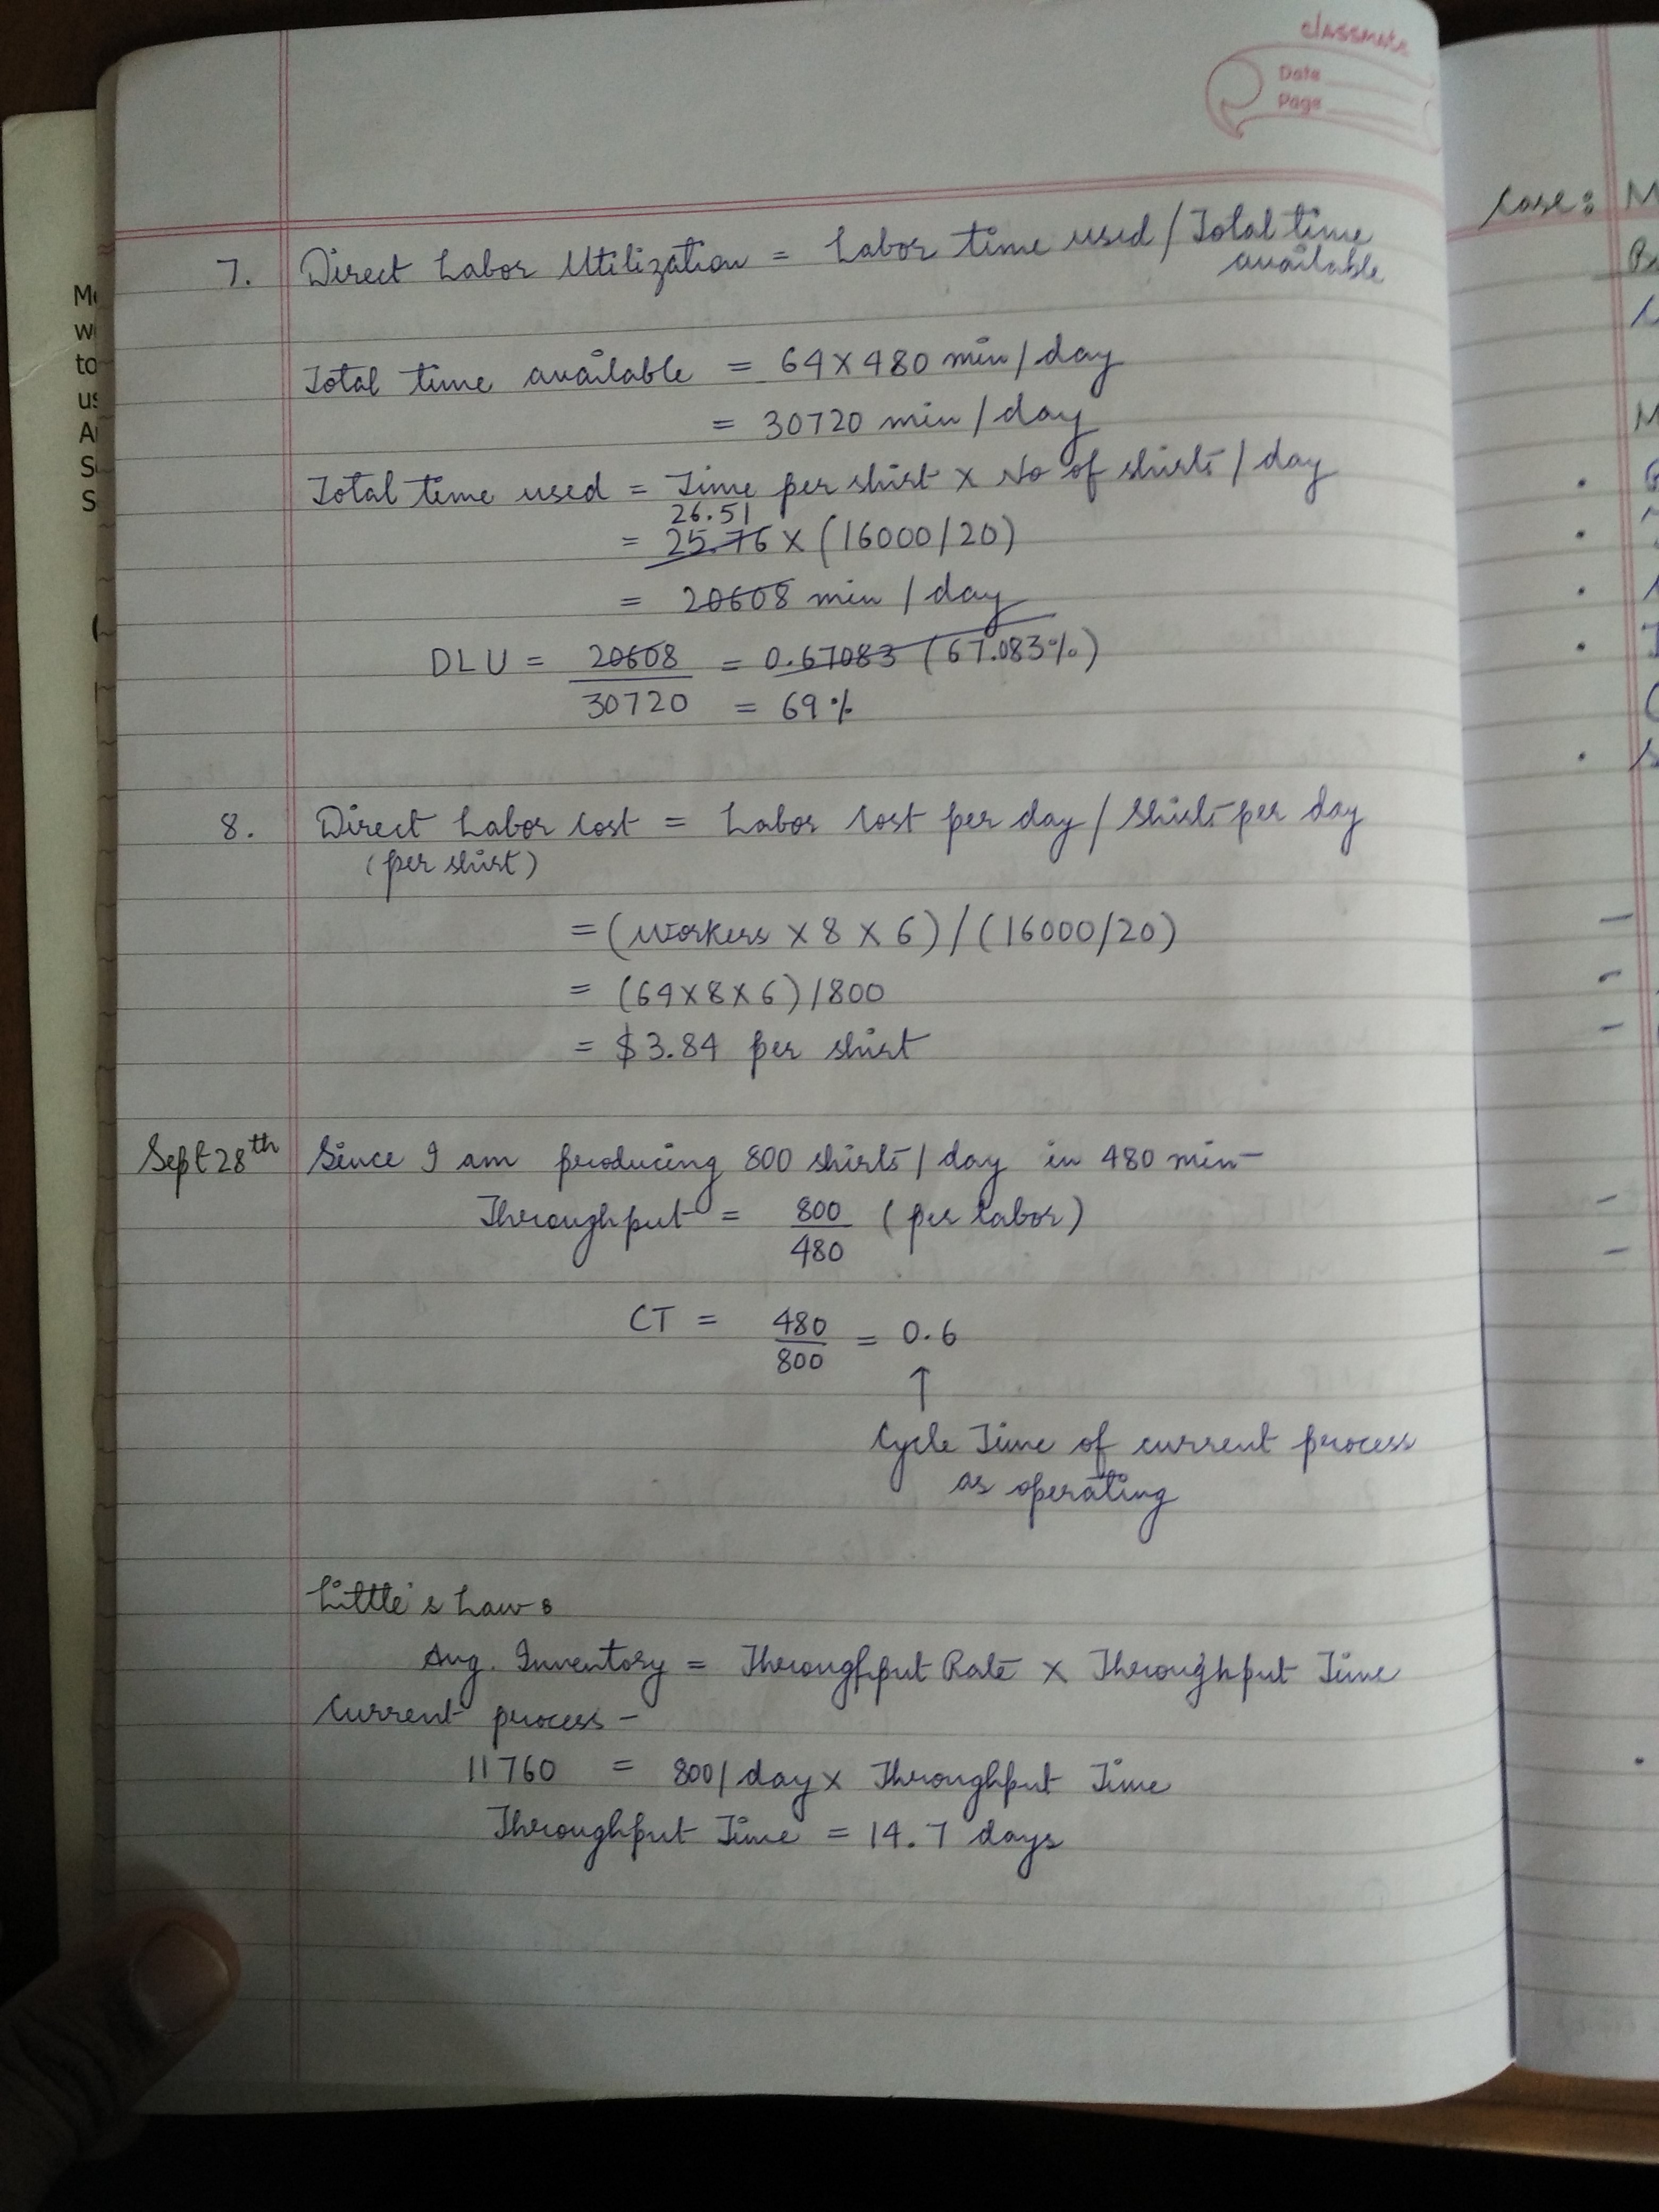 classmate
Date
Page
7. Direct Labor Utilization = Labor time used / Total time
available
Total time available = 64 x 480 min / day
= 30720 min / day
Total time used = Time per shirt x No of shirts / day
26.51
= 25.76 x (16000/20)
= 20608 min / day
DLU = 20608 / 30720 = 0.67083 (67.083%)
= 69%
8. Direct Labor Cost = Labor Cost per day / Shirts per day
(per shirt)
= (workers x 8 x 6) / (16000/20)
= (64x8x6)/800
= $3.84 per shirt
Sept 28th Since I am producing 800 shirts / day in 480 min-
Throughput = 800 / 480 (per labor)
CT = 480 / 800 = 0.6
↑
Cycle Time of current process
as operating
Little's Law:
Avg. Inventory = Throughput Rate x Throughput Time
Current process -
11760 = 800/day x Throughput Time
Throughput Time = 14.7 days
Case: